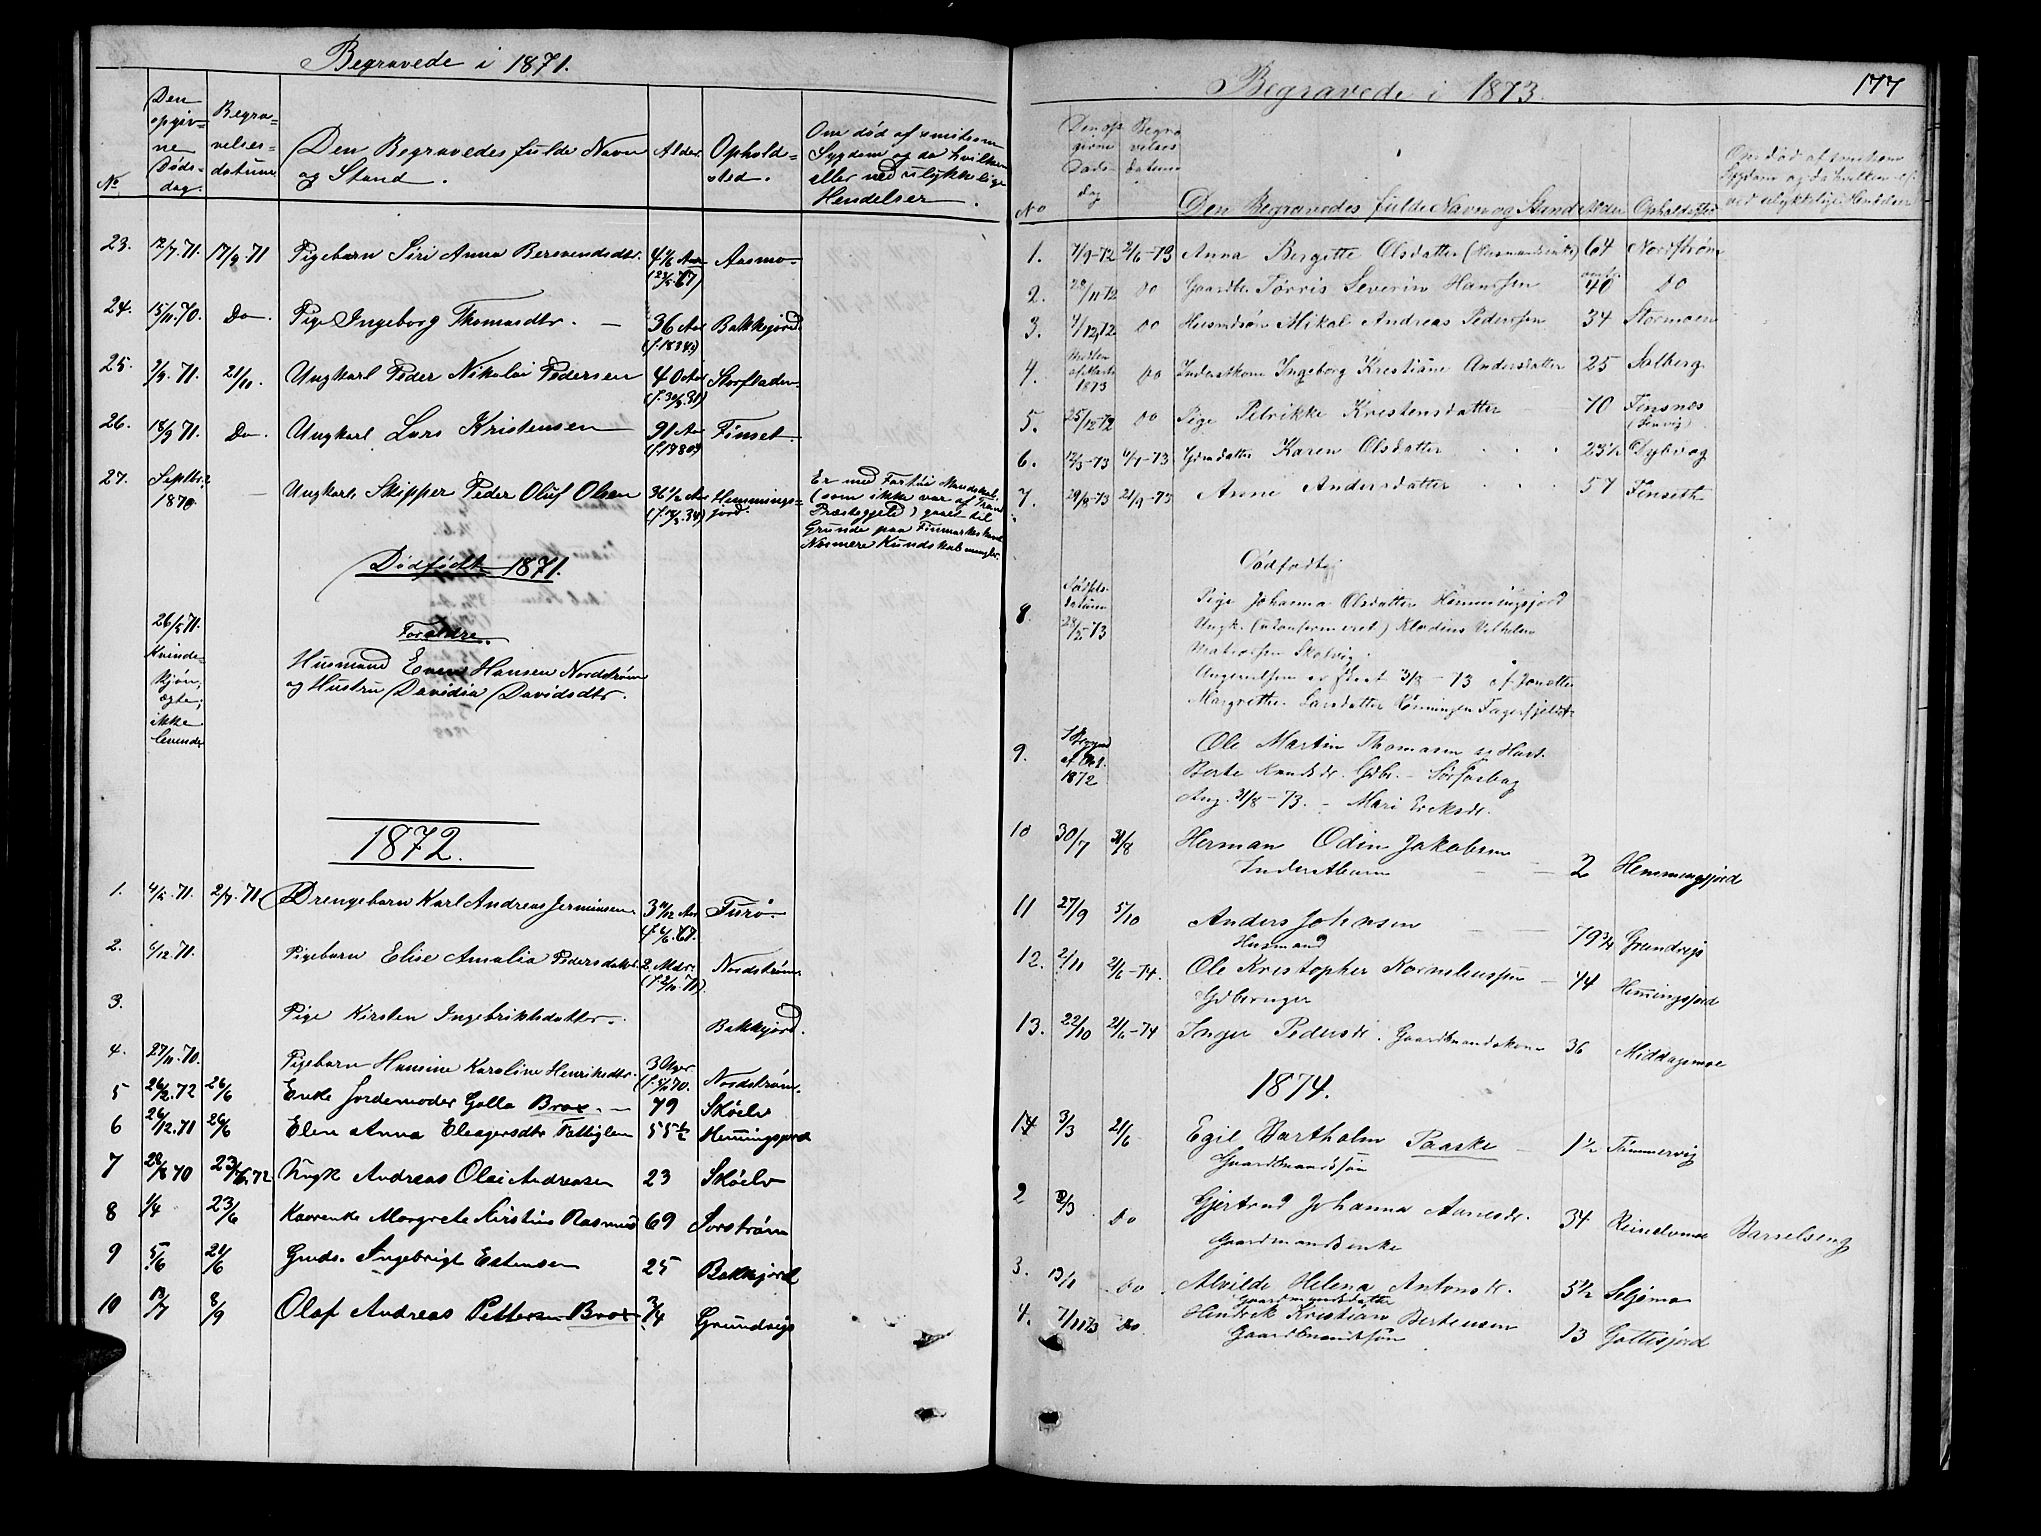 Begravede i 1871.
No
Den opgiv=ne Døds=dag.
Begra=velses=datum
Den Begravedes fulde Navn og Stand.
Alder.
Ophold=sted.
Om død af smitsom Sygdom og da hvilken eller ved ulykkelige Hendelser.
23. 12/7.71. 17/9.71 Pigebarn Siri Anna Berevendsdtr. 4 1/6 Aar Aasmo.
24. 15/11.70. Do. Pige Ingeborg Thomasdtr. — 36 Aar Bakkejord.
(f. 1834)
25. 2/9.71. 21/10. Ungkarl Peder Nikolai Pedersen 40 Aar Storfladen.
26. 18/9.71. Do. Ungkarl Lars Kristensen 91 Aar Finset.
(f. 1780)
27. Septbr. 1870. — Ungkarl Skipper Peder Oluf Olsen 36 1/2 Aar Hemmings=jord.
Er med Fartøi Mandskab
(som ikke var af Præstegjeld) gaaet til
Grunde paa Finmarkes
Nærmere Kundskab mangler.
Dødfødte 1871.
26/5.71. Kvinde=kjøn, ægte; ikke levende
Forældre.
Husmand Evens Hansen Nordstrøm
og Hustru Davidia Davidsdtr.
1872.
1. 4/5.71. 2/7.71. Drengebarn Karl Andreas Jerminsen 3 Aar Furø.
2. 6/12.71. Pigebarn Elise Amalia Pedersdatter 2 Mdr. Nordstrøm.
(f. 2/10.71)
3. Pige Kirsten Ingebriktsdatter. Bakkejord.
4. 27/11.70. Pigebarn Hansine Karoline Henriksdtr. 3 Uger Nordstrøm.
5 26/2.72 26/6 Enke Jordemoder Golla Brox. — 79 Skøelv
6 26/12.71 26/6 Elen Anna Eleagersdtr Fattiglem 55 1/2 Hemingsjord
7 28/8 70 23/6.72 Ungk Andreas Olai Andreasen 23 Skøelv
8 1/4 23/6 Kaarenke Margrete Kirstine Rasmusd 69 Sorstrøm
9 5/6 21/6 Gmds. Ingebrigt Estensen 25 Bakkejord
10 13/7 8/9 Olaf Andreas Pettersen Brox 3/4 Grundvig
Begravede i 1873.
177
No
Den opgivne Døds dag
Begravelses datum
Den Begravedes fulde Navn og Stand
Alder
Opholdssted
Om død af smitsom Sygdom og da hvilken el. ved ulykkelige Hendelser
1. 7/9-72 2/6-73 Anna Bergitte Olsdatter (Husmandsenke) 64 Nordstrøm
2. 28/11-72 Do Gaardbr. Tørris Severin Hanssen 40 Do
3. 4/12,72 Do Husmdsøn Mikal Andreas Pederssen 34 Stormoen
4. Midten af Marts 1873 Do Inderstkone Ingeborg Kristiane Andersdatter 25 Solberg
5. 25/12-72 Do Pige Petrikke Kristensdatter 70 Finsnes
6. 12/5-73 6/7-73 Gdmdatter Karen Olsdatter 23 1/2 Dybvag
7. 29/8-73 21/9-73 Anne Andersdatter 57 Finseth
Dødfødte
8 Fødsels datum 28/5-73
Pige Johanna Olsdatter Hemmingsjord
Ungk. (ukonfirmeret) Kladius Vilhelm
Mathiesen Skatvig
Angivelsen er skeet 3/8-73 af Jonette
Margrethe Larsdatter Rønningen Fagerfjeldet
9. af Okt. 1872
Ole Martin Thomasen og Hust.
Berte Knudsdr. Gdbr. - Sørfarbag
Ang. 31/8-73. - Mari Eriksdr.
10 30/7 31/8 Herman Odin Jakobsen
Inderstbarn — 2 Hemmingsjord
11 27/9 5/10 Anders Johnsen
Husmand 79 3/4 Grundvig
12. 2/11 21/6-74. Ole Kristopher Korneliussen — 44 Hemingsjord
Gdbruger
13. 22/10 21/6-74 Inger Pedersdr. Gaardmandskone 36 Middagsnæs
1874.
14 3/3 21/6 Egil Bartholm Paaske — 1 1/2 Tømmervig
Gaardmandssøn
2 3/3 Do Gjertrud Johanna Aanesdr. 34 Reindomd Barselseng
Gaardmandsenke
3. 13/1 Do Alvilde Helena Antonsdr. 5 1/2 Seljemo
Gaardmandsdatter
4. 7/11 73 Do Hendrik Kristian Bertensen 13 Gottesjord
Gaardmandssøn